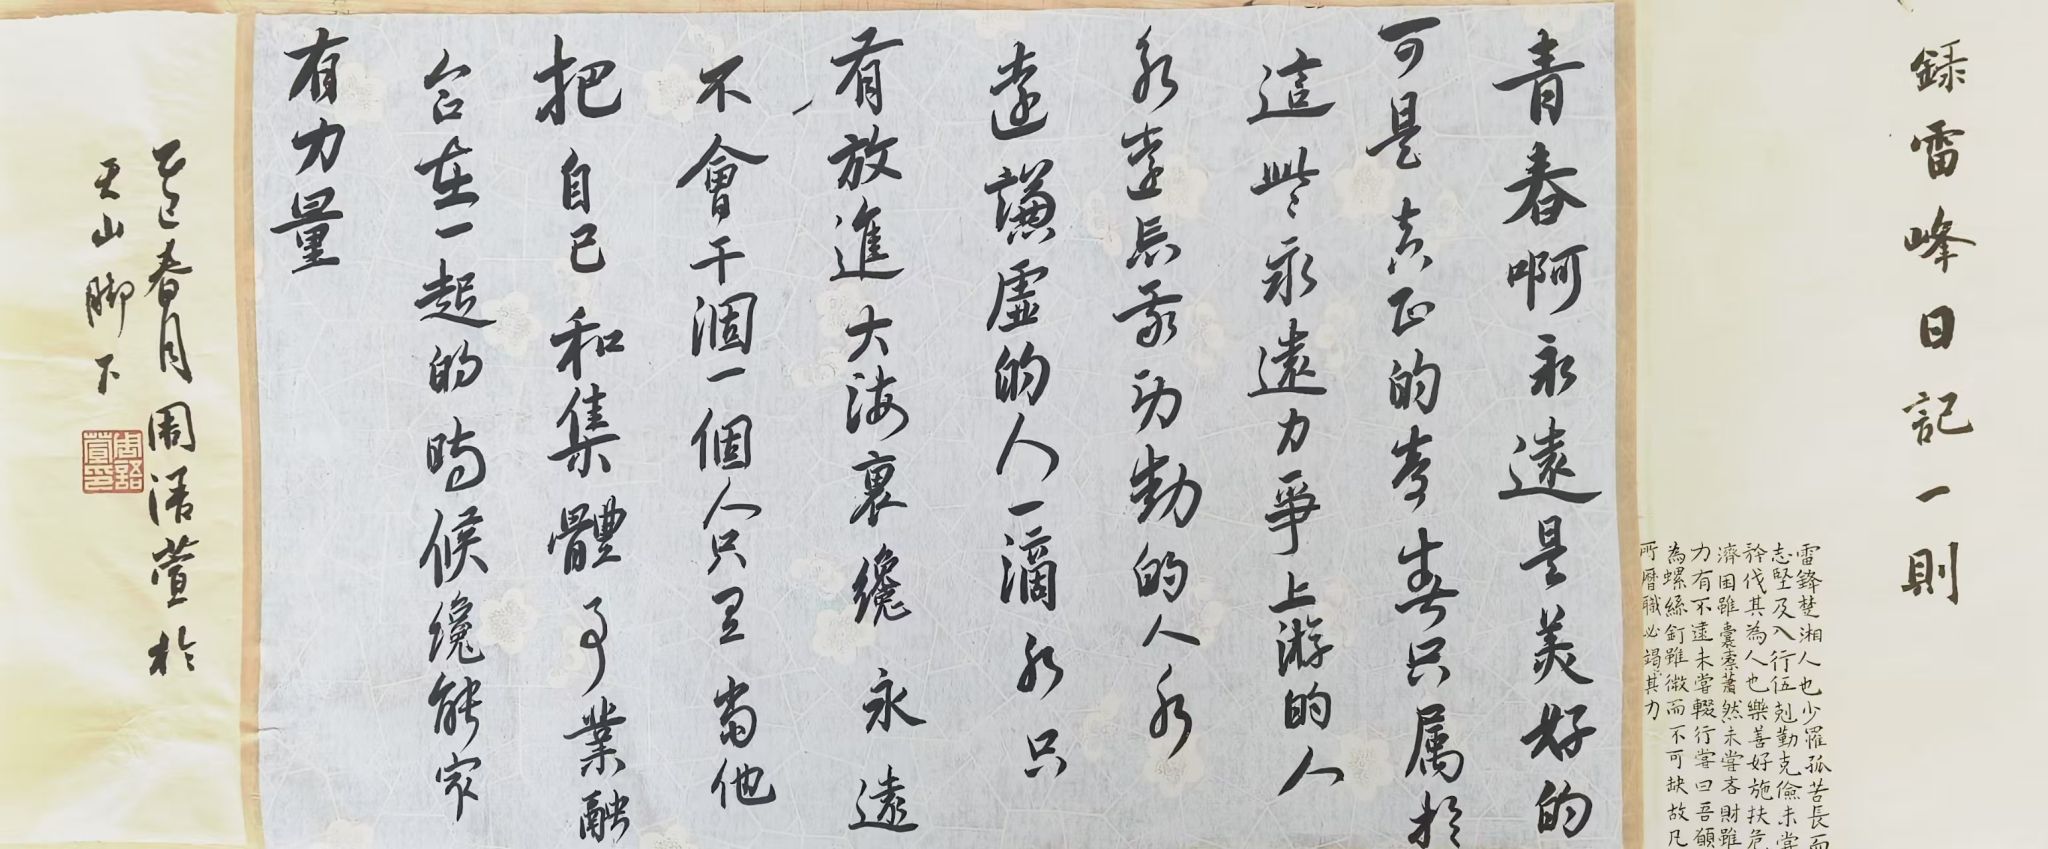 錄雷峰日記一則
雷鋒楚湘人也少罹孤苦長而
志堅及入行伍剋勤克儉未嘗
矜伐其為人也樂善好施扶危
濟困雖囊橐蕭然未嘗吝財雖
力有不逮未嘗輟行嘗曰吾願
為螺絲釘雖微而不可缺故凡
所曆職必竭其力
青春啊永遠是美好的
可是真正的青春只属於
這些永遠力爭上游的人
永遠忘我勞動的人永
遠謙虛的人一滴水只
有放進大海裏纔永遠
不會干涸一個人只有當他
把自己和集體事業融
合在一起的時候纔能最
有力量
乙巳春月周浯萱於
天山腳下